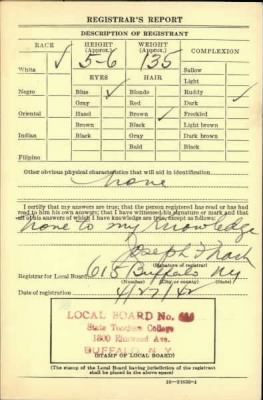 REGISTRAR'S REPORT
DESCRIPTION OF REGISTRANT
RACE HEIGHT (Approx.) WEIGHT (Approx.) COMPLEXION
White ✓ 5-6 135 Sallow
EYES HAIR Light
Negro Blue ✓ Blonde Ruddy ✓
Gray Red Dark
Oriental Hazel Brown Freckled
Brown Black ✓ Light brown
Indian Black Gray Dark brown
Bald Black
Filipino
Other obvious physical characteristics that will aid in identification
none
I certify that my answers are true; that the person registered has read or has had read to him his own answers; that I have witnessed his signature or mark and that all of his answers of which I have knowledge are true, except as follows:
none to my knowledge
Joseph
(Signature of registrar)
Registrar for Local Board 615 Buffalo NY
(Number) (City or county) (State)
Date of registration 4/27/42
LOCAL BOARD No.
State Teachers College
1300 Elmwood Ave.
BUFFALO, N. Y.
(STAMP OF LOCAL BOARD)
(The stamp of the Local Board having jurisdiction of the registrant shall be placed in the above space.)